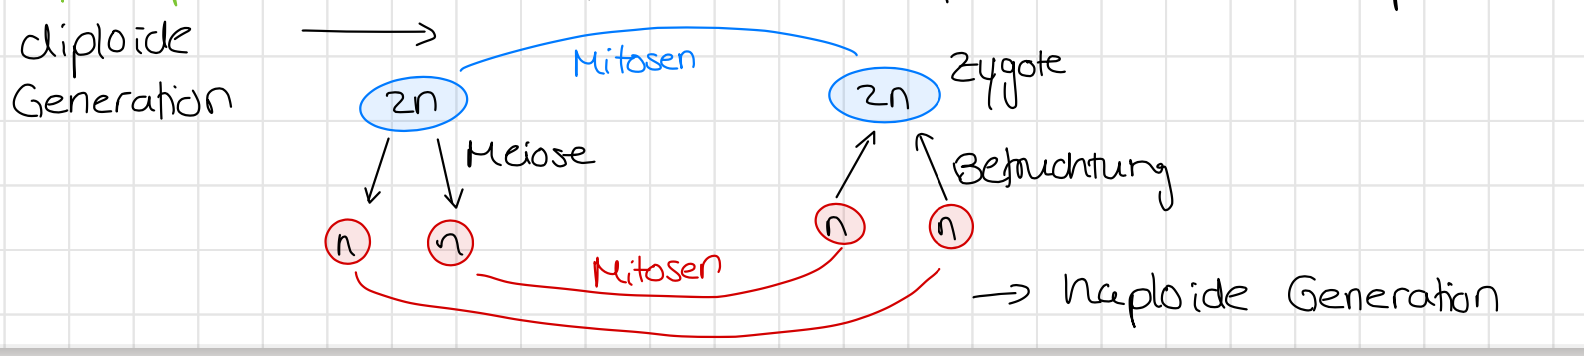 diploide
Generation
Mitosen
2n
2n
Zygote
Meiose
Befruchtung
n
n
n
n
Mitosen
haploide Generation